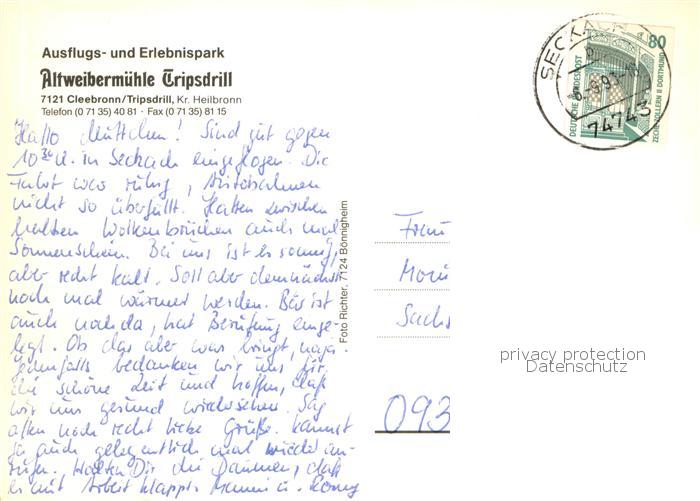 Ausflugs- und Erlebnispark
Altweibermühle Tripsdrill
7121 Cleebronn/Tripsdrill, Kr. Heilbronn
Telefon (0 71 35) 40 81 · Fax (0 71 35) 81 15
Hallo Muttchen! Sind gut gegen
10³⁰ U. in Seckach eingeflogen. Die
Fahrt war ruhig, Autobahnen
nicht so überfüllt. Hatten zwischen
Wolkenbrüchen auch mal
Sonnenschein. Bei uns ist es sonnig,
aber recht kalt. Soll aber demnächst
noch mal wärmer werden. Bär ist
auch noch da, hat Berufung einge-
legt. Ob das aber was bringt, naja.
Jedenfalls bedanken wir uns für
die schöne Zeit und hoffen, daß
wir uns gesund wiedersehen. Sag
allen noch recht liebe Grüße. Kannst
ja auch gelegentlich mal wieder an-
rufen. Halten Dir die Daumen, daß
es mit Arbeit klappt. u. Romy
Foto Richter, 7124 Bönnigheim
SECKACH
-8.-9.93-
74743
80
DEUTSCHE BUNDESPOST
ZECHE ZOLLERN II DORTMUND
Frau
Moni
Sachs
093
privacy protection
Datenschutz